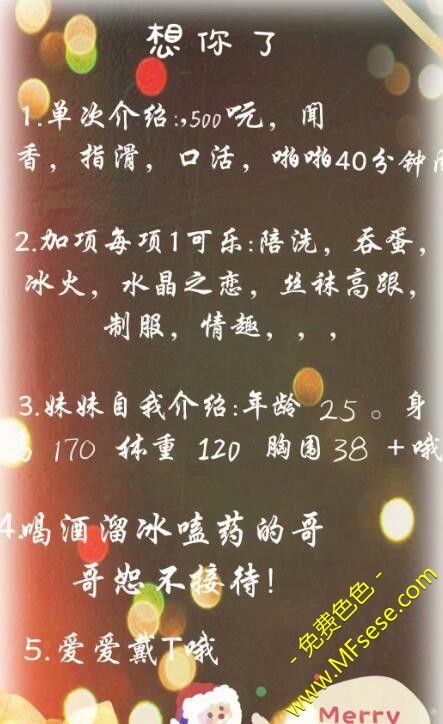 想你了
1.单次介绍:,500吮，闻
香，指滑，口活，啪啪40分钟
2.加项每项1可乐:陪洗，吞蛋，
冰火，水晶之恋，丝袜高跟，
制服，情趣，，，
3.妹妹自我介绍:年龄 25。身
170 体重 120 胸围38+哦
4.喝酒溜冰嗑药的哥
哥恕不接待!
5.爱爱戴T哦
-免费色色-
www.MFsese.com
Merry